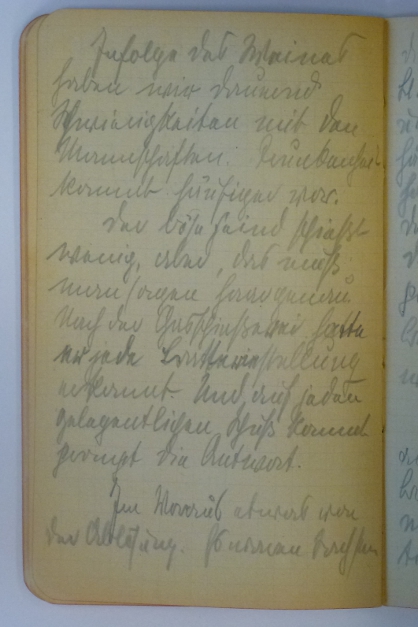 Infolge des Weines
haben wir dauernd
Schwierigkeiten mit den
Mannschaften. Trunkenheit
kommt häufiger vor.
Der böse Feind schießt
wenig, aber, das muß
man sagen haargenau
Nach der Einschießerei hatte
er jede Batteriestellung
erkannt. Und auf jeden
gelegentlichen Schuß kommt
prompt die Antwort.
Im Voraus etwas von
der Ablösung. Es waren